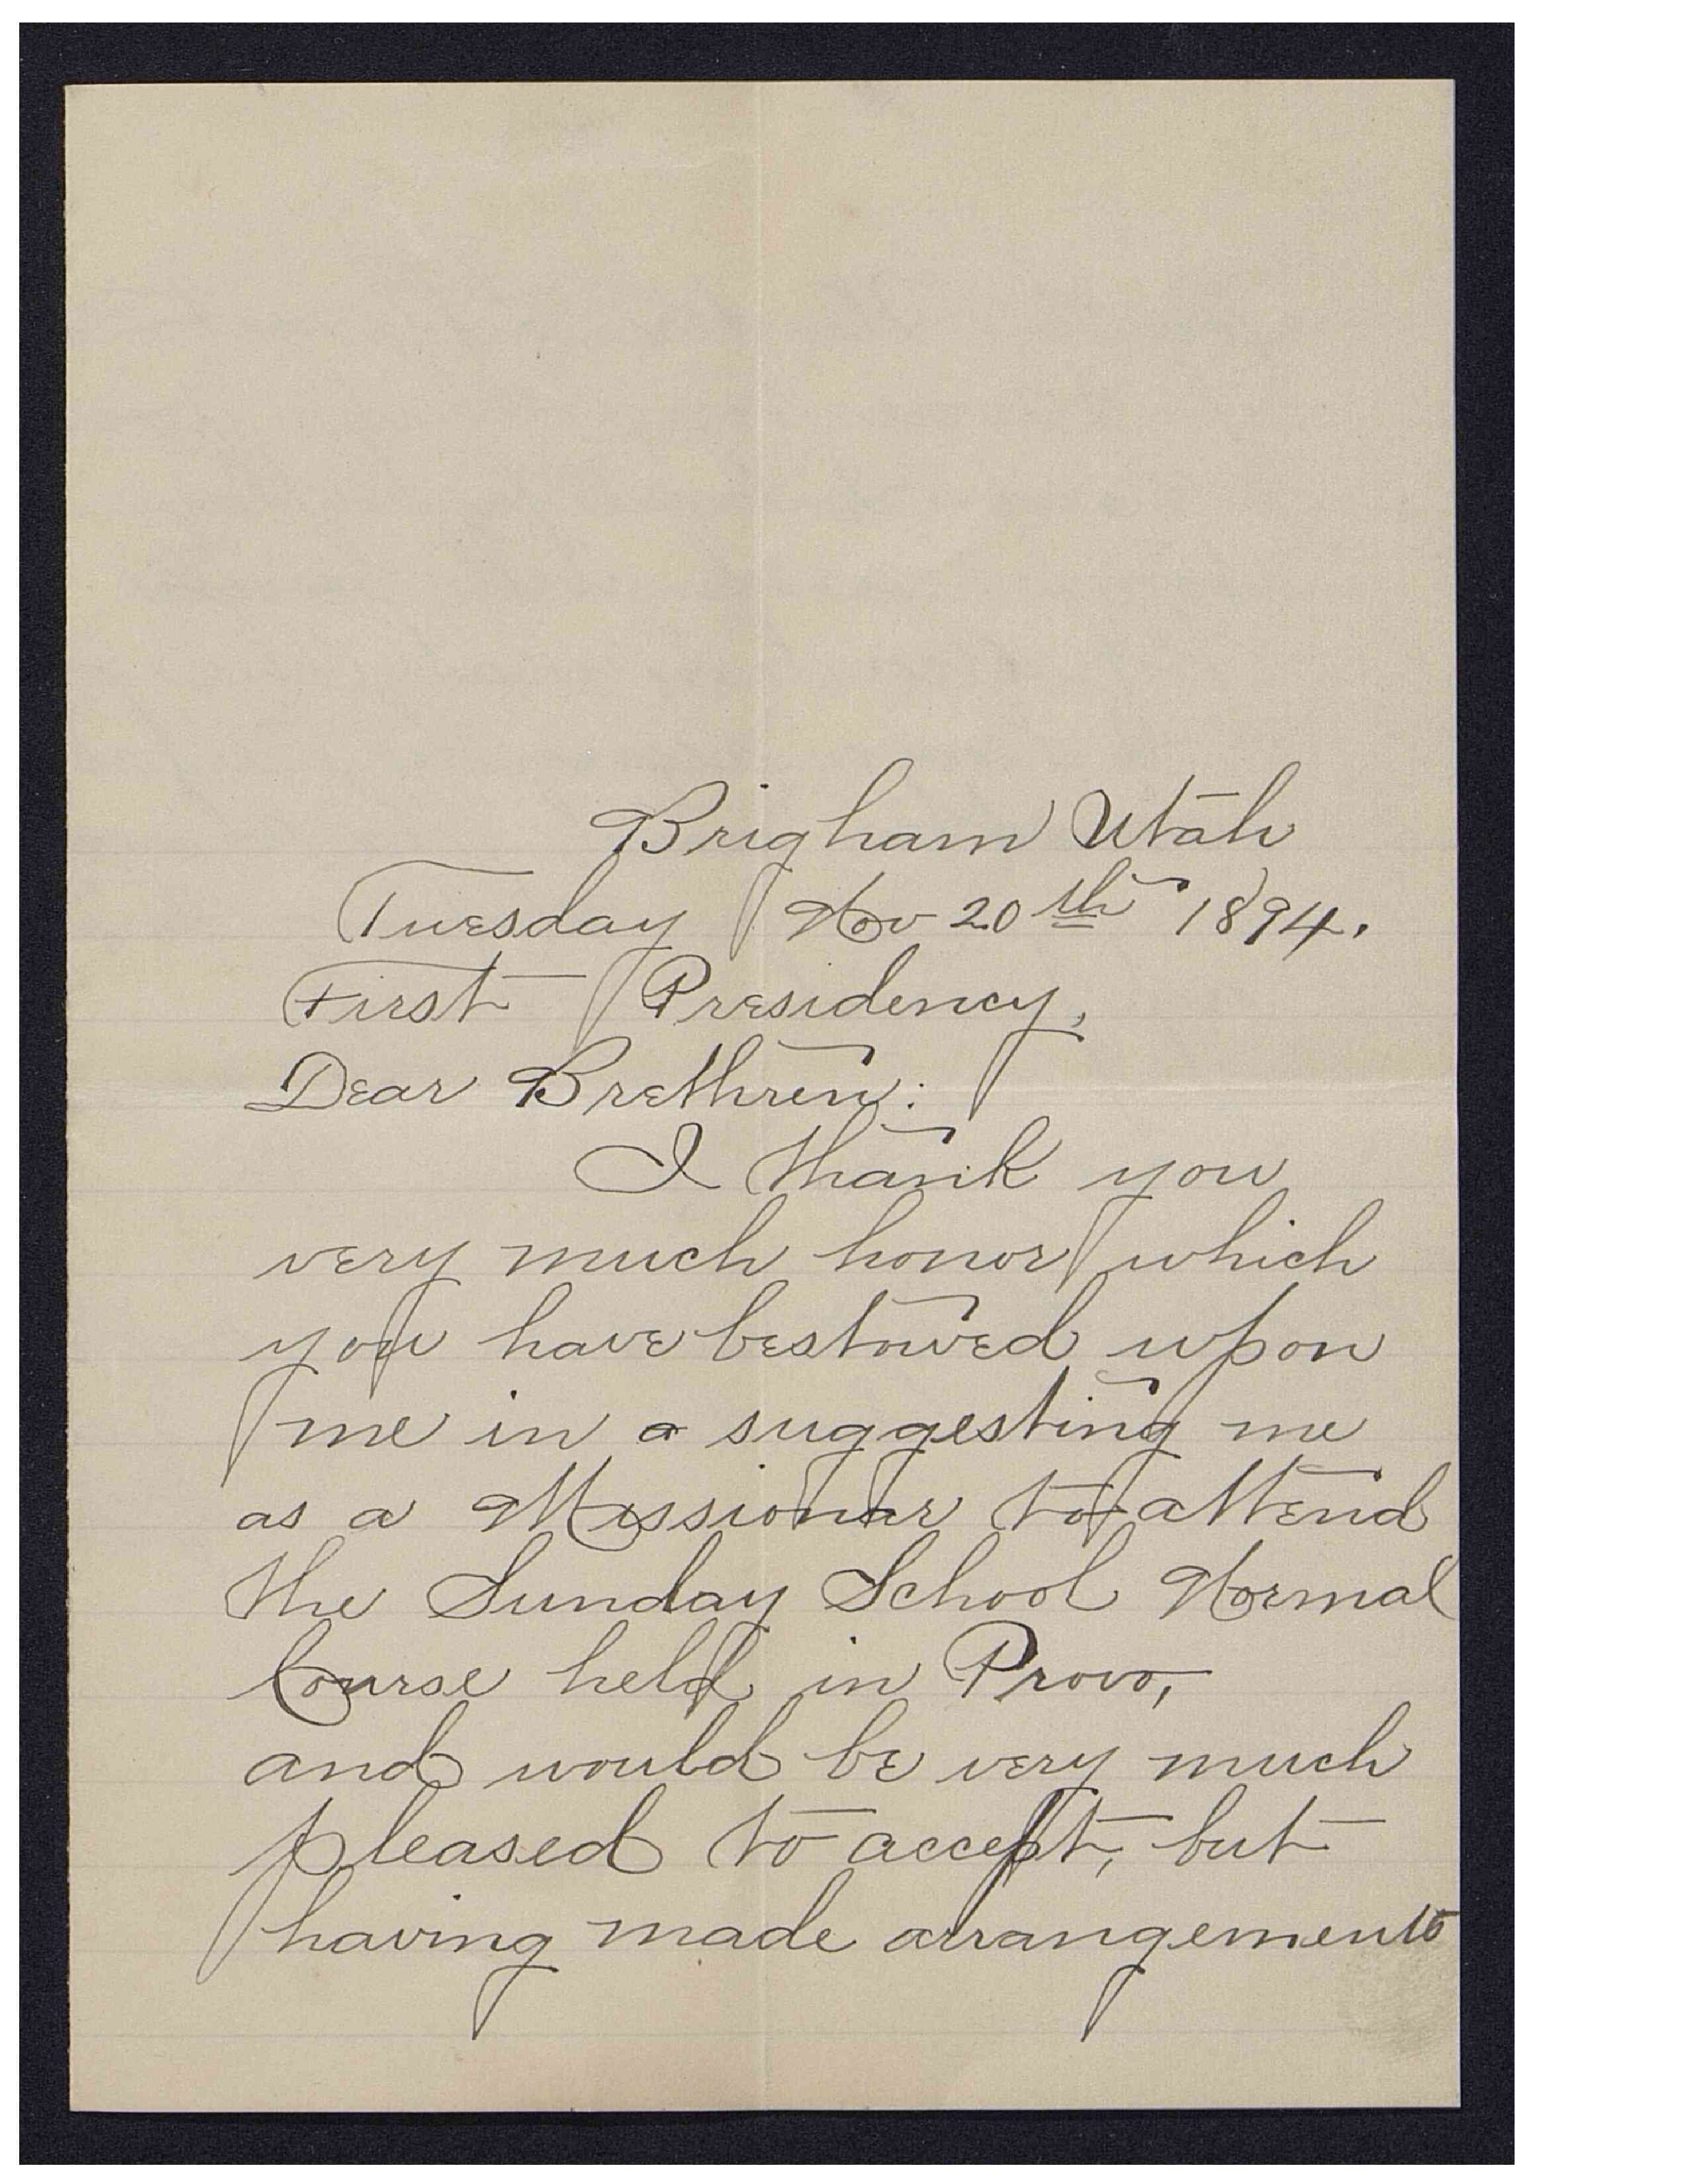 Brigham Utah
Tuesday Nov 20th 1894.
First Presidency,
Dear Brethren:
I thank you
very much honor which
you have bestowed upon
me in a suggesting me
as a Missionar to attend
the Sunday School Normal
Course held in Provo,
and would be very much
pleased to accept, but
having made arrangements